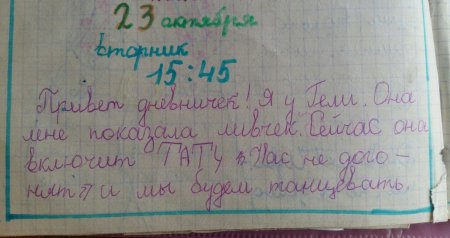 23 октября
вторник
15:45
Привет дневничек! Я у Гели. Она
мне показала ливчек. Сейчас она
включит "ТАТУ "Нас не дого-
нят" и мы будем танцевать.